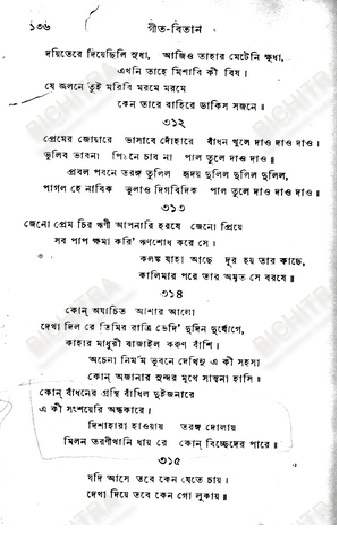 ১৩৬ গীত-বিতান
দয়িতেরে দিয়েছিলি সুধা, আজিও তাহার মেটেনি ক্ষুধা,
এখনি তাহে মিশাবি কী বিষ।
যে জ্বলনে তুই মরিবি মরমে মরমে
কেন তারে বাহিরে ডাকিস সজনে।
৩১২
প্রেমের জোয়ারে ভাসাবে দোঁহারে বাঁধন খুলে দাও দাও দাও।
ভুলিব ভাবনা পিছনে চাব না পাল তুলে দাও দাও॥
প্রবল পবনে তরঙ্গ তুলিল হৃদয় দুলিল দুলিল দুলিল,
পাগল হে নাবিক ভুলাও দিগবিদিক পাল তুলে দাও দাও॥
৩১৩
জেনো প্রেম চির ঋণী আপনারি হরষে জেনো প্রিয়ে
সব পাপ ক্ষমা করি' ঋণশোধ করে সে।
কলঙ্ক যাহা আছে দূর হয় তার কাছে,
কালিমার পরে তার অমৃত সে বরষে॥
৩১৪
কোন্ অযাচিত আশার আলো
দেখা দিল রে তিমির রাত্রি ভেদি' দুর্দিন দুর্যোগে,
কাহার মাধুরী বাজাইল করুণ বাঁশি।
অচেনা নির্মম ভুবনে দেখিনু এ কী সহসা
কোন্ অজানার সুন্দর মুখে সান্ত্বনা হাসি॥
কোন্ বাঁধনের গ্রন্থি বাঁধিল দুইজনারে
এ কী সংশয়েরি অন্ধকারে।
দিশাহারা হাওয়ায় তরঙ্গ দোলায়
মিলন তরণীখানি ধায় রে কোন্ বিচ্ছেদের পারে॥
৩১৫
যদি আসে তবে কেন যেতে চায়।
দেখা দিয়ে তবে কেন গো লুকায়॥
BICHITRA